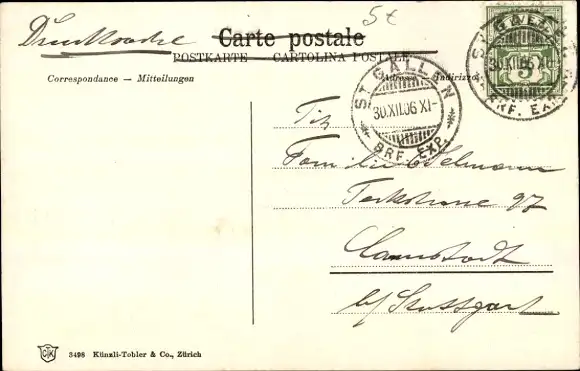 5€
Drucksache
Carte postale
POSTKARTE — CARTOLINA POSTALE
Correspondance — Mitteilungen
Adresse — Indirizzo
ST. GALLEN
30.XII.06 XI-
BRF. EXP.
ST. GALLEN
30.XII.06 XI-
BRF. EXP.
5
Tit
Familie
97
Cannstadt
b/ Stuttgart
3498 Künzli-Tobler & Co., Zürich